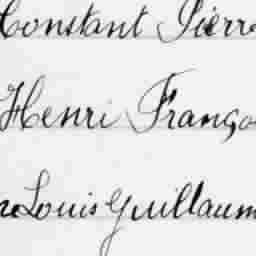 Constant Pierre
Henri Franço
re Louis Guillaum